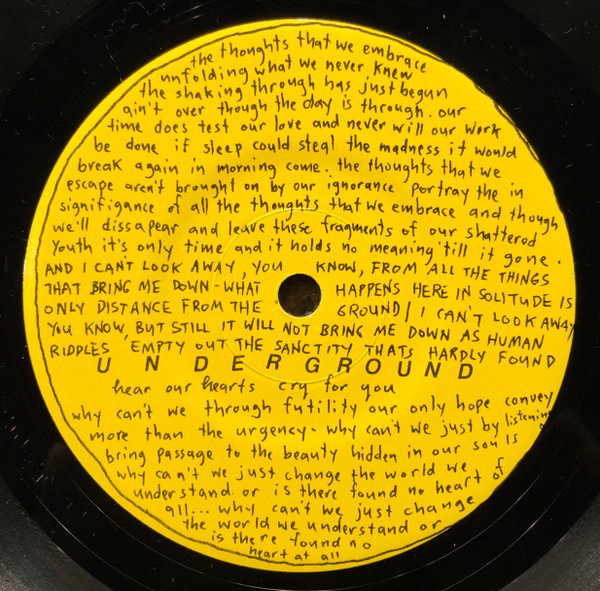 the thoughts that we embrace
unfolding what we never knew
the shaking through has just begun
ain't over though the day is through. our
time does test our love and never will our work
be done if sleep could steal the madness it would
break again in morning come. the thoughts that we
escape aren't brought on by our ignorance portray the in
signifigance of all the thoughts that we embrace and though
we'll dissapear and leave these fragments of our shattered
Youth it's only time and it holds no meaning 'till it gone.
AND I CAN'T LOOK AWAY, YOU KNOW, FROM ALL THE THINGS
THAT BRING ME DOWN-WHAT HAPPENS HERE IN SOLITUDE IS
ONLY DISTANCE FROM THE GROUND/ I CAN'T LOOK AWAY
YOU KNOW, BUT STILL IT WILL NOT BRING ME DOWN AS HUMAN
RIDDLES EMPTY OUT THE SANCTITY THATS HARDLY FOUND
UNDERGROUND
hear our hearts cry for you
why can't we through futility our only hope convey
more than the urgency. why can't we just by listening
bring passage to the beauty hidden in our souls
why can't we just change the world we
understand. or is there found no heart of
all... why can't we just change
the world we understand or
is there found no
heart at all